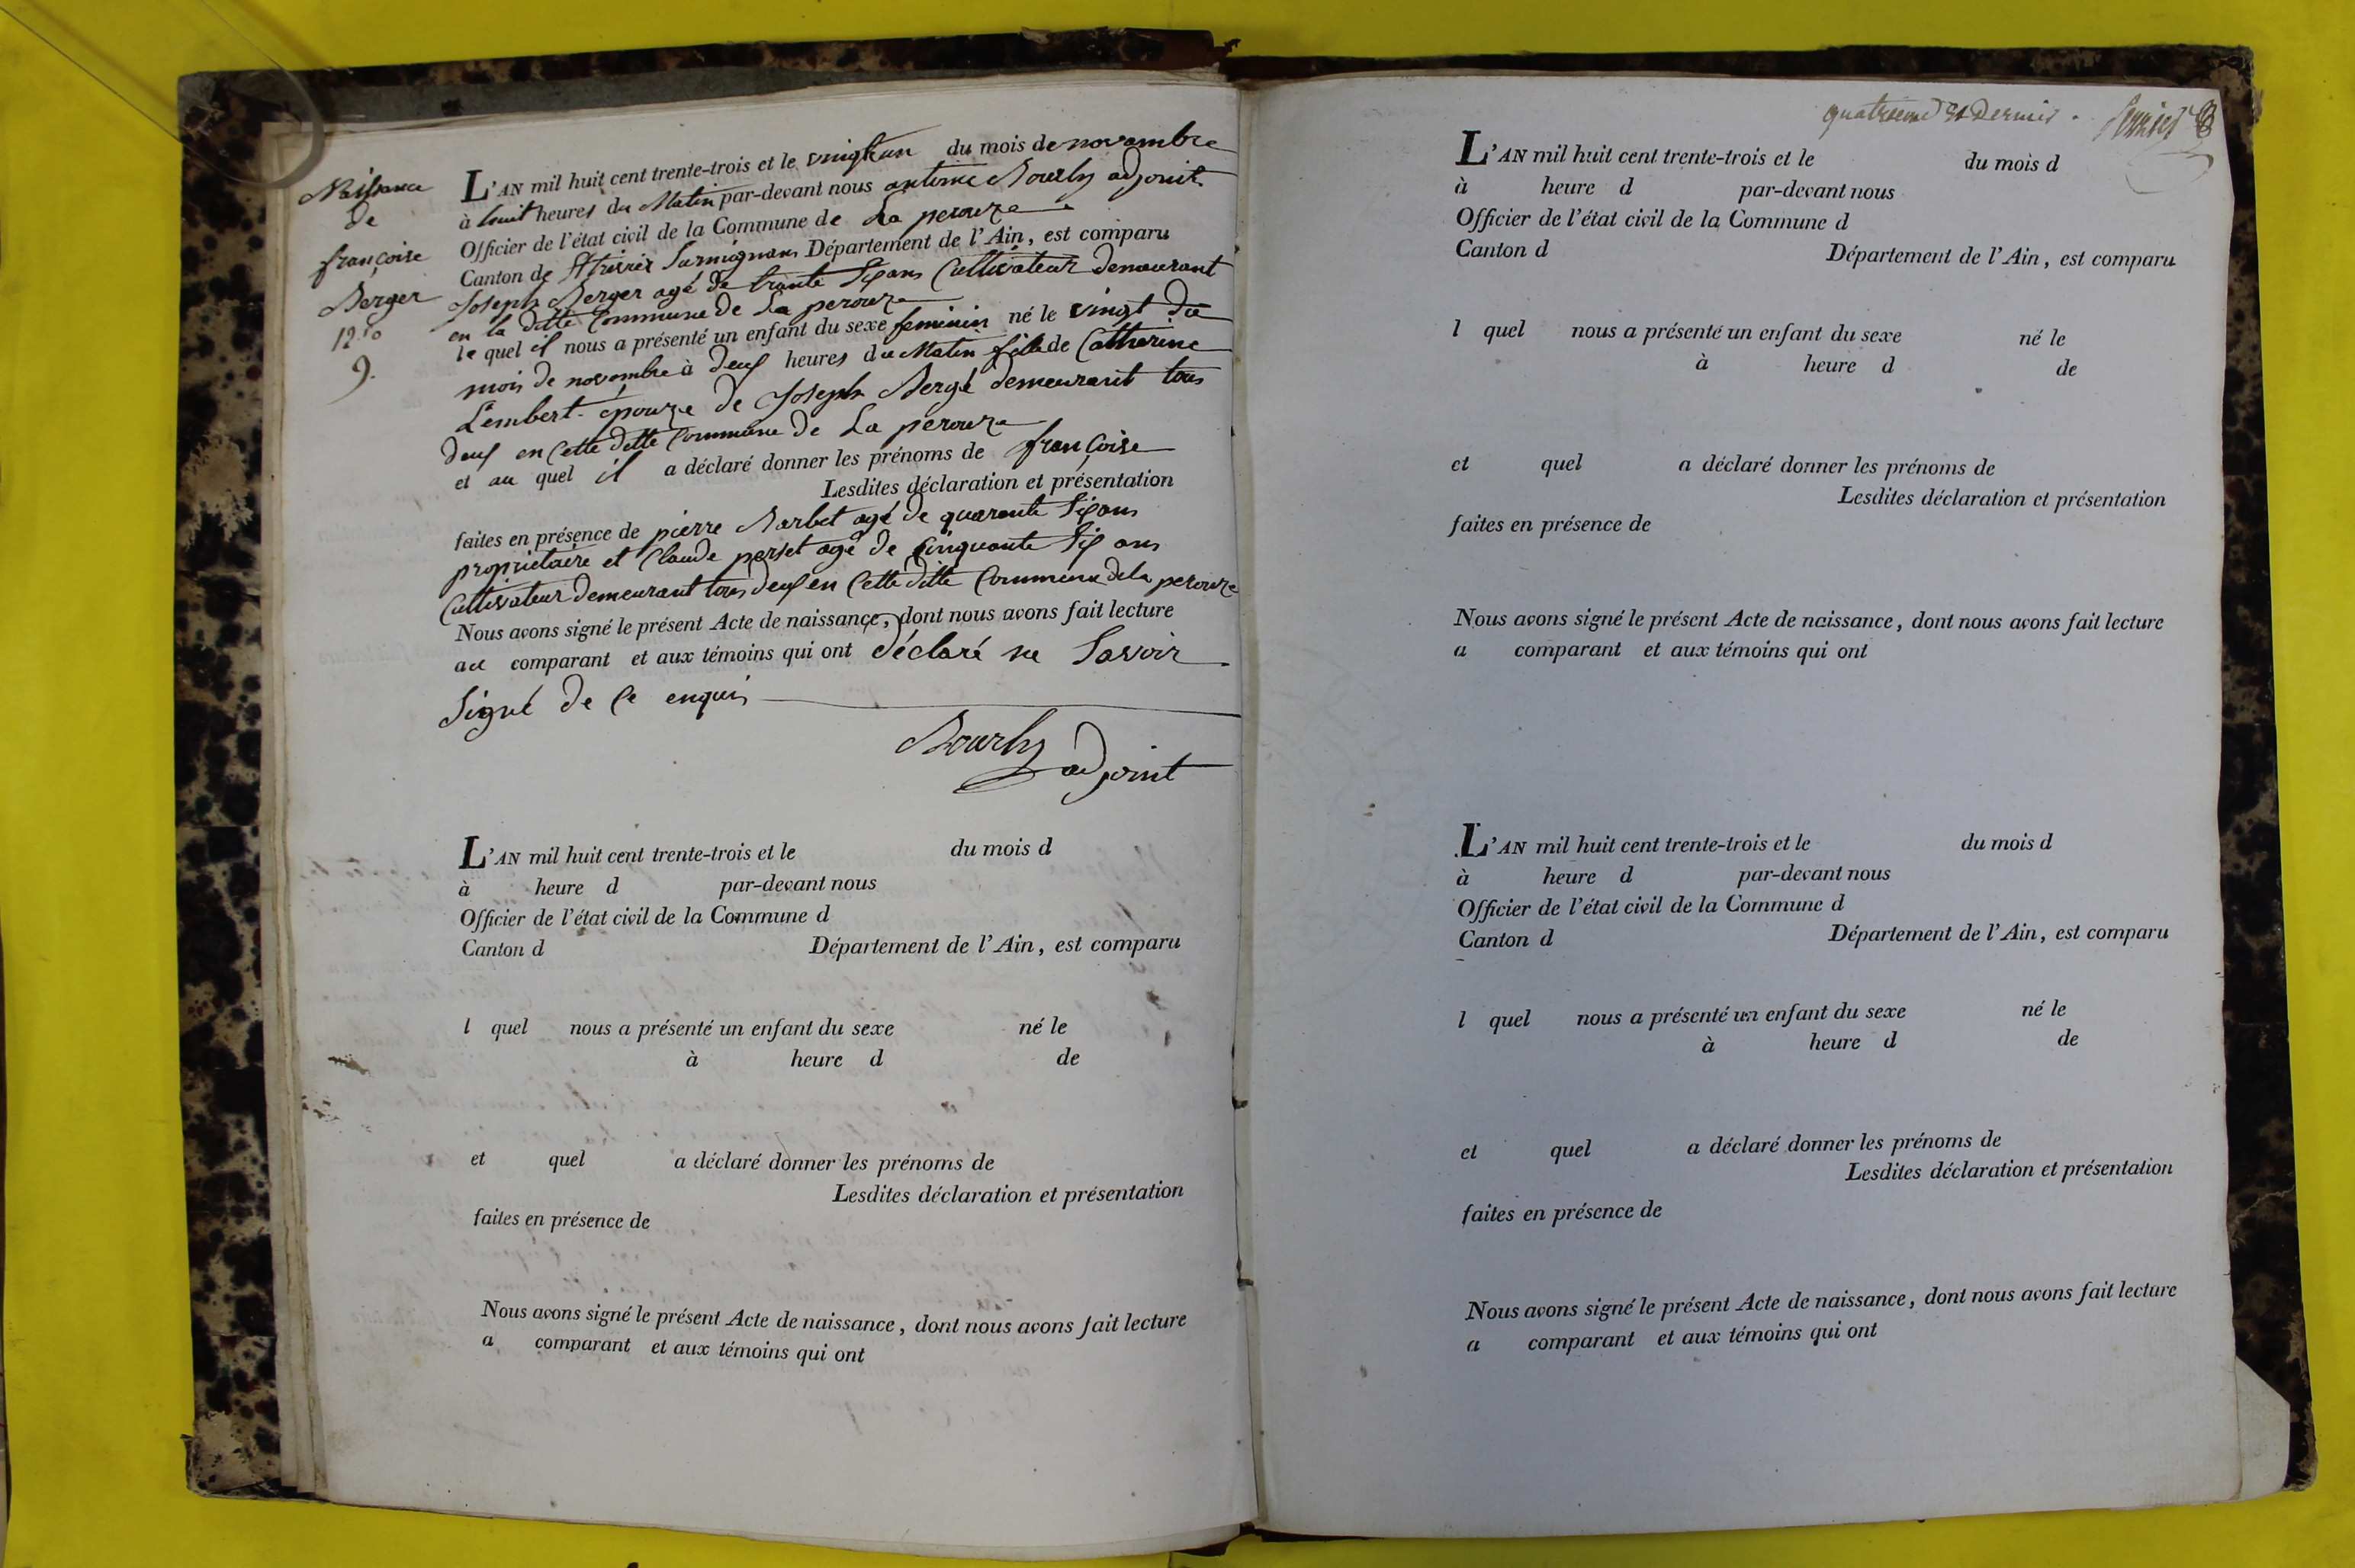 Naissance
de
françoise
Berger
12.
9.
L'AN mil huit cent trente-trois et le vingt un du mois de novembre
à huit heures du Matin par-devant nous antoine Bourly adjoint
Officier de l'état civil de la Commune de La perouze
Canton de St trivier Surmoignans Département de l'Ain, est comparu
Joseph Berger agé de trante Six ans Cultivateur demeurant
en la ditte Commune de La perouze
le quel il nous a présenté un enfant du sexe feminin né le vingt du
mois de novembre à deux heures du Matin fille de Catherine
Lembert épouze de Joseph Bergé demeurant tous
deux en Cette ditte Commune de La perouze
et au quel il a déclaré donner les prénoms de françoise
Lesdites déclaration et présentation
faites en présence de pierre Barbet agé de quarante Six ans
propriétaire et Claude perset agé de Cinquante Six ans
Cultivateur demeurant tous deux en Cette ditte Commune de la perouze
Nous avons signé le présent Acte de naissance, dont nous avons fait lecture
au comparant et aux témoins qui ont déclaré ne Savoir
Signé de Ce enquis
Bourly
adjoint
L'AN mil huit cent trente-trois et le du mois d
à heure d par-devant nous
Officier de l'état civil de la Commune d
Canton d Département de l'Ain, est comparu
l quel nous a présenté un enfant du sexe né le
à heure d de
et quel a déclaré donner les prénoms de
Lesdites déclaration et présentation
faites en présence de
Nous avons signé le présent Acte de naissance, dont nous avons fait lecture
a comparant et aux témoins qui ont
quatrieme et dernier.
L'AN mil huit cent trente-trois et le du mois d
à heure d par-devant nous
Officier de l'état civil de la Commune d
Canton d Département de l'Ain, est comparu
l quel nous a présenté un enfant du sexe né le
à heure d de
et quel a déclaré donner les prénoms de
Lesdites déclaration et présentation
faites en présence de
Nous avons signé le présent Acte de naissance, dont nous avons fait lecture
a comparant et aux témoins qui ont
L'AN mil huit cent trente-trois et le du mois d
à heure d par-devant nous
Officier de l'état civil de la Commune d
Canton d Département de l'Ain, est comparu
l quel nous a présenté un enfant du sexe né le
à heure d de
et quel a déclaré donner les prénoms de
Lesdites déclaration et présentation
faites en présence de
Nous avons signé le présent Acte de naissance, dont nous avons fait lecture
a comparant et aux témoins qui ont